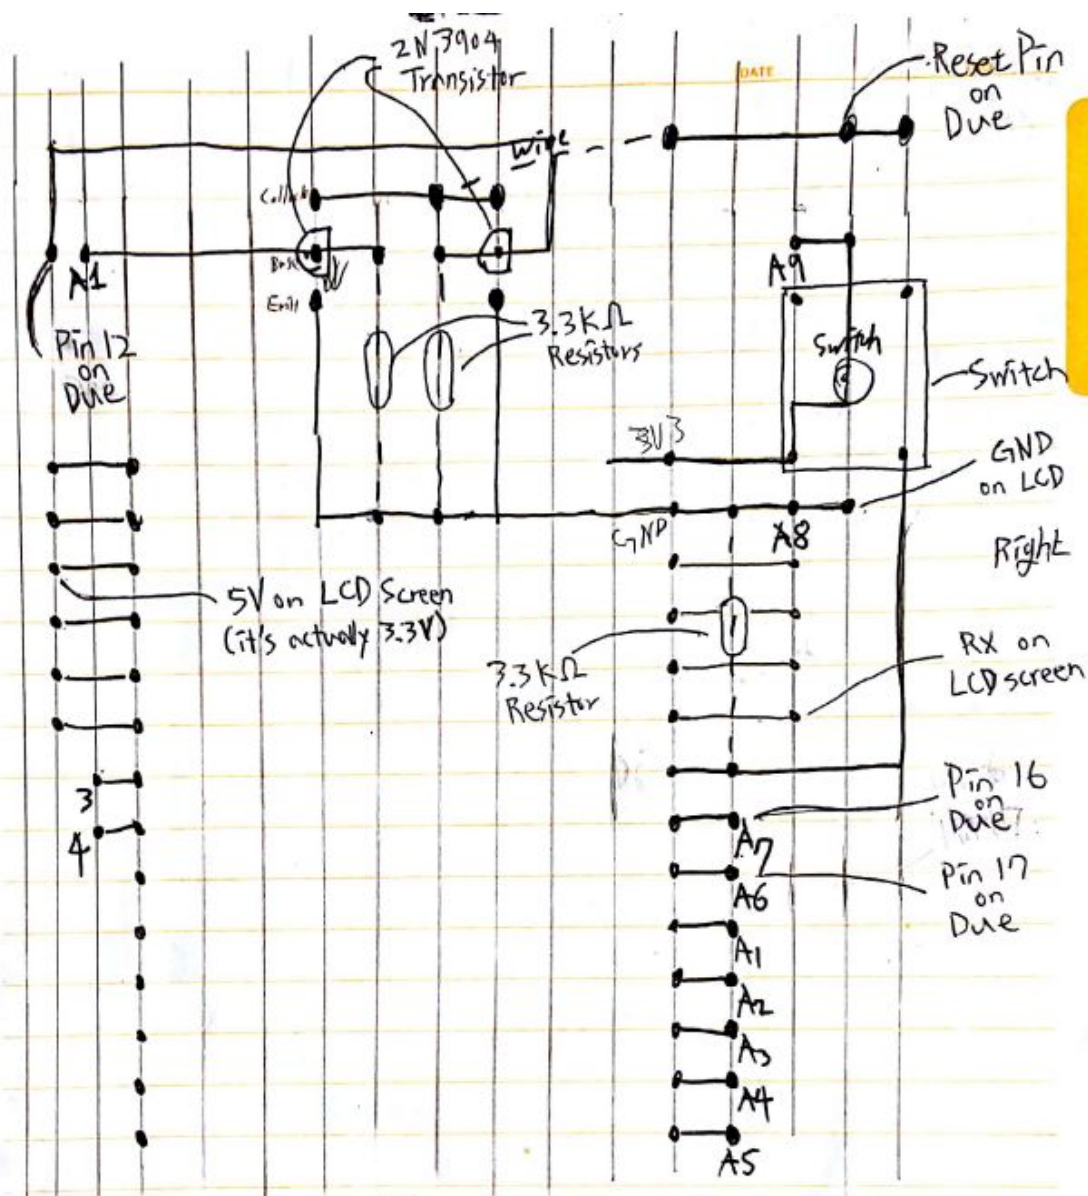 2N3904
Transistor
DATE
Reset Pin
on
Due
Wire
Base
A1
A9
Pin 12
on
Due
3.3KΩ
Resistors
Switch
Switch
3V3
GND
on LCD
GND
A8
Right
5V on LCD Screen
(it's actually 3.3V)
3.3KΩ
Resistor
RX on
LCD screen
3
4
Pin 16
on
Due
A7
Pin 17
on
Due
A6
A1
A2
A3
A4
A5